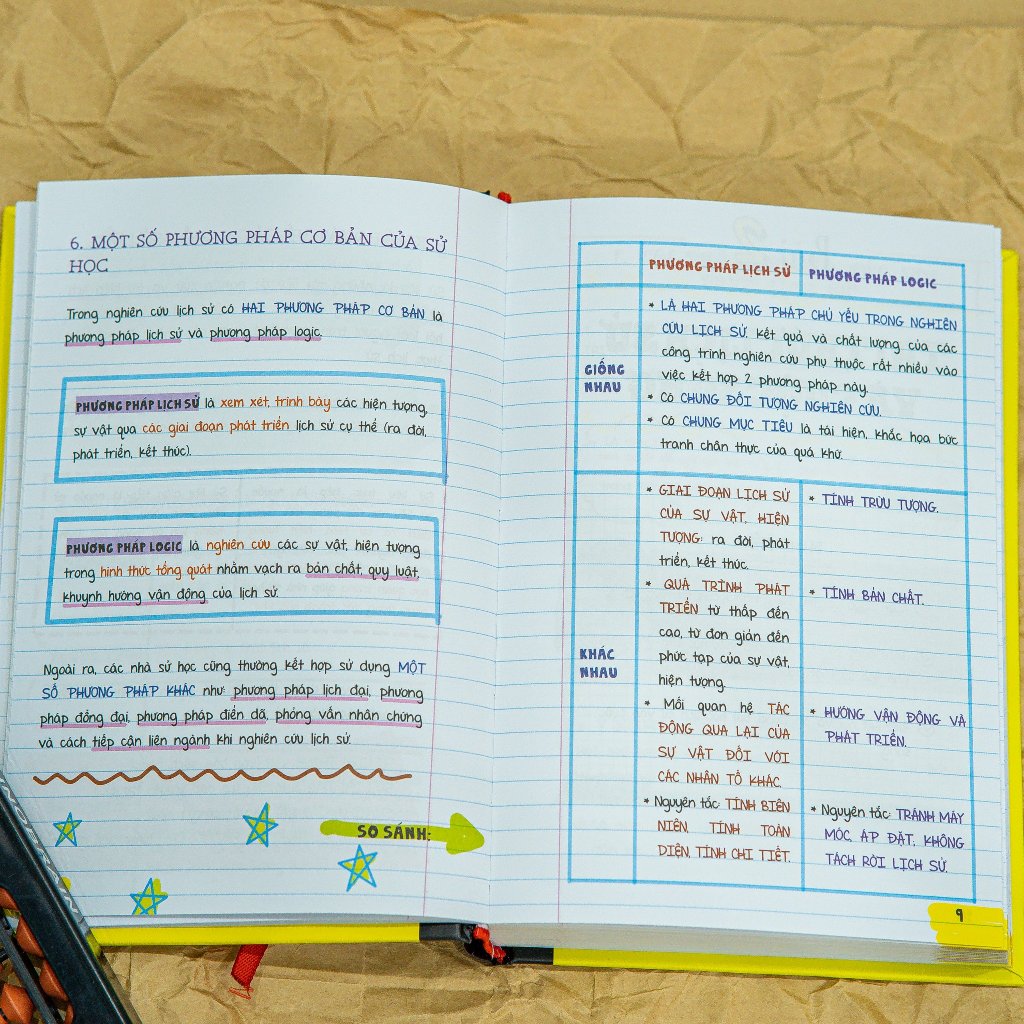 6. MỘT SỐ PHƯƠNG PHÁP CƠ BẢN CỦA SỬ
HỌC
Trong nghiên cứu lịch sử có HAI PHƯƠNG PHÁP CƠ BẢN là
phương pháp lịch sử và phương pháp logic.
PHƯƠNG PHÁP LỊCH SỬ là xem xét, trình bày các hiện tượng,
sự vật qua các giai đoạn phát triển lịch sử cụ thể (ra đời,
phát triển, kết thúc).
PHƯƠNG PHÁP LOGIC là nghiên cứu các sự vật, hiện tượng
trong hình thức tổng quát nhằm vạch ra bản chất, quy luật,
khuynh hướng vận động của lịch sử.
Ngoài ra, các nhà sử học cũng thường kết hợp sử dụng MỘT
SỐ PHƯƠNG PHÁP KHÁC như: phương pháp lịch đại, phương
pháp đồng đại, phương pháp điền dã, phỏng vấn nhân chứng
và cách tiếp cận liên ngành khi nghiên cứu lịch sử.
SO SÁNH:
PHƯƠNG PHÁP LỊCH SỬ
PHƯƠNG PHÁP LOGIC
GIỐNG
NHAU
* LÀ HAI PHƯƠNG PHÁP CHỦ YẾU TRONG NGHIÊN
CỨU LỊCH SỬ. kết quả và chất lượng của các
công trình nghiên cứu phụ thuộc rất nhiều vào
việc kết hợp 2 phương pháp này.
* Có CHUNG ĐỐI TƯỢNG NGHIÊN CỨU.
* Có CHUNG MỤC TIÊU là tái hiện, khắc họa bức
tranh chân thực của quá khứ.
KHÁC
NHAU
* GIAI ĐOẠN LỊCH SỬ
CỦA SỰ VẬT, HIỆN
TƯỢNG: ra đời, phát
triển, kết thúc.
* QUÁ TRÌNH PHÁT
TRIỂN từ thấp đến
cao, từ đơn giản đến
phức tạp của sự vật,
hiện tượng.
* Mối quan hệ TÁC
ĐỘNG QUA LẠI CỦA
SỰ VẬT ĐỐI VỚI
CÁC NHÂN TỐ KHÁC.
* Nguyên tắc: TÍNH BIÊN
NIÊN, TÍNH TOÀN
DIỆN, TÍNH CHI TIẾT.
* TÍNH TRỪU TƯỢNG.
* TÍNH BẢN CHẤT.
* HƯỚNG VẬN ĐỘNG VÀ
PHÁT TRIỂN.
* Nguyên tắc: TRÁNH MÁY
MÓC, ÁP ĐẶT, KHÔNG
TÁCH RỜI LỊCH SỬ.
9